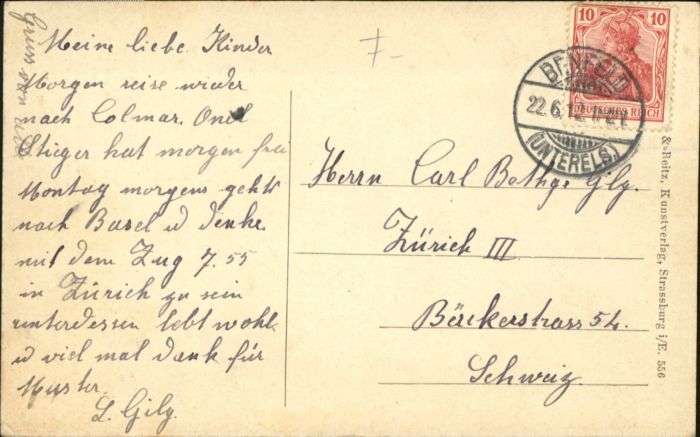 Meine liebe Kinder
Morgen reise wieder
nach Colmar. Onel
Stieger hat morgen frei
Montag morgens geht's
nach Basel u denke
mit dem Zug 7.55
in Zürich zu sein
unterdessen lebt wohl
u viel mal dank für
Muster.
L. Gily
7-
10 10
DEUTSCHES REICH
BENFELD
22.6.
(UNTERELS.)
Herrn Carl Bothge Gly.
Zürich III
Bäckerstrass 54.
Schweiz
& Reitz, Kunstverlag, Strassburg i/E. 556